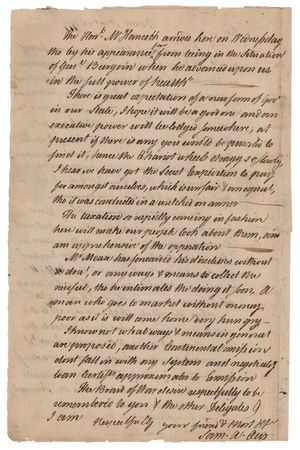 The Honl. Mr Hancock arrived here on Wednesday
tho by his appearance far from being in the Situation
of Genl. Burgoin when he advanced upon us
in the full power of health
There is great expectation of a new form of Gov
in our State, I hope it will be a good one and an
executive power will be lodged somewhere, at
present if there is any you would be puzzled to
find it, hence the Chariot wheels drag so slowly,
I hear we have got the Secret Expedition to pay
for amongst ourselves, which is unfair & unequal,
tho it was concluded in a wretched manner
The taxation so rapidly coming in fashion
here will make our people look about them, am
am apprehensive of the operation
Mr has forwarded his directions without
or any ways & means to collect the
needful, tho he intimates the doing it soon. A
man who goes to market without money,
poor as it is will come home very hungry
I know not what ways & means in general
are proposed, another Continental emission
dont fall in with my System and
Loan Certifs approximate to Emission
The Board of War desire respectfully to be
remembered to you & the other Delegates
I am
respectfully your friend & Most H
Sam. A. Otis